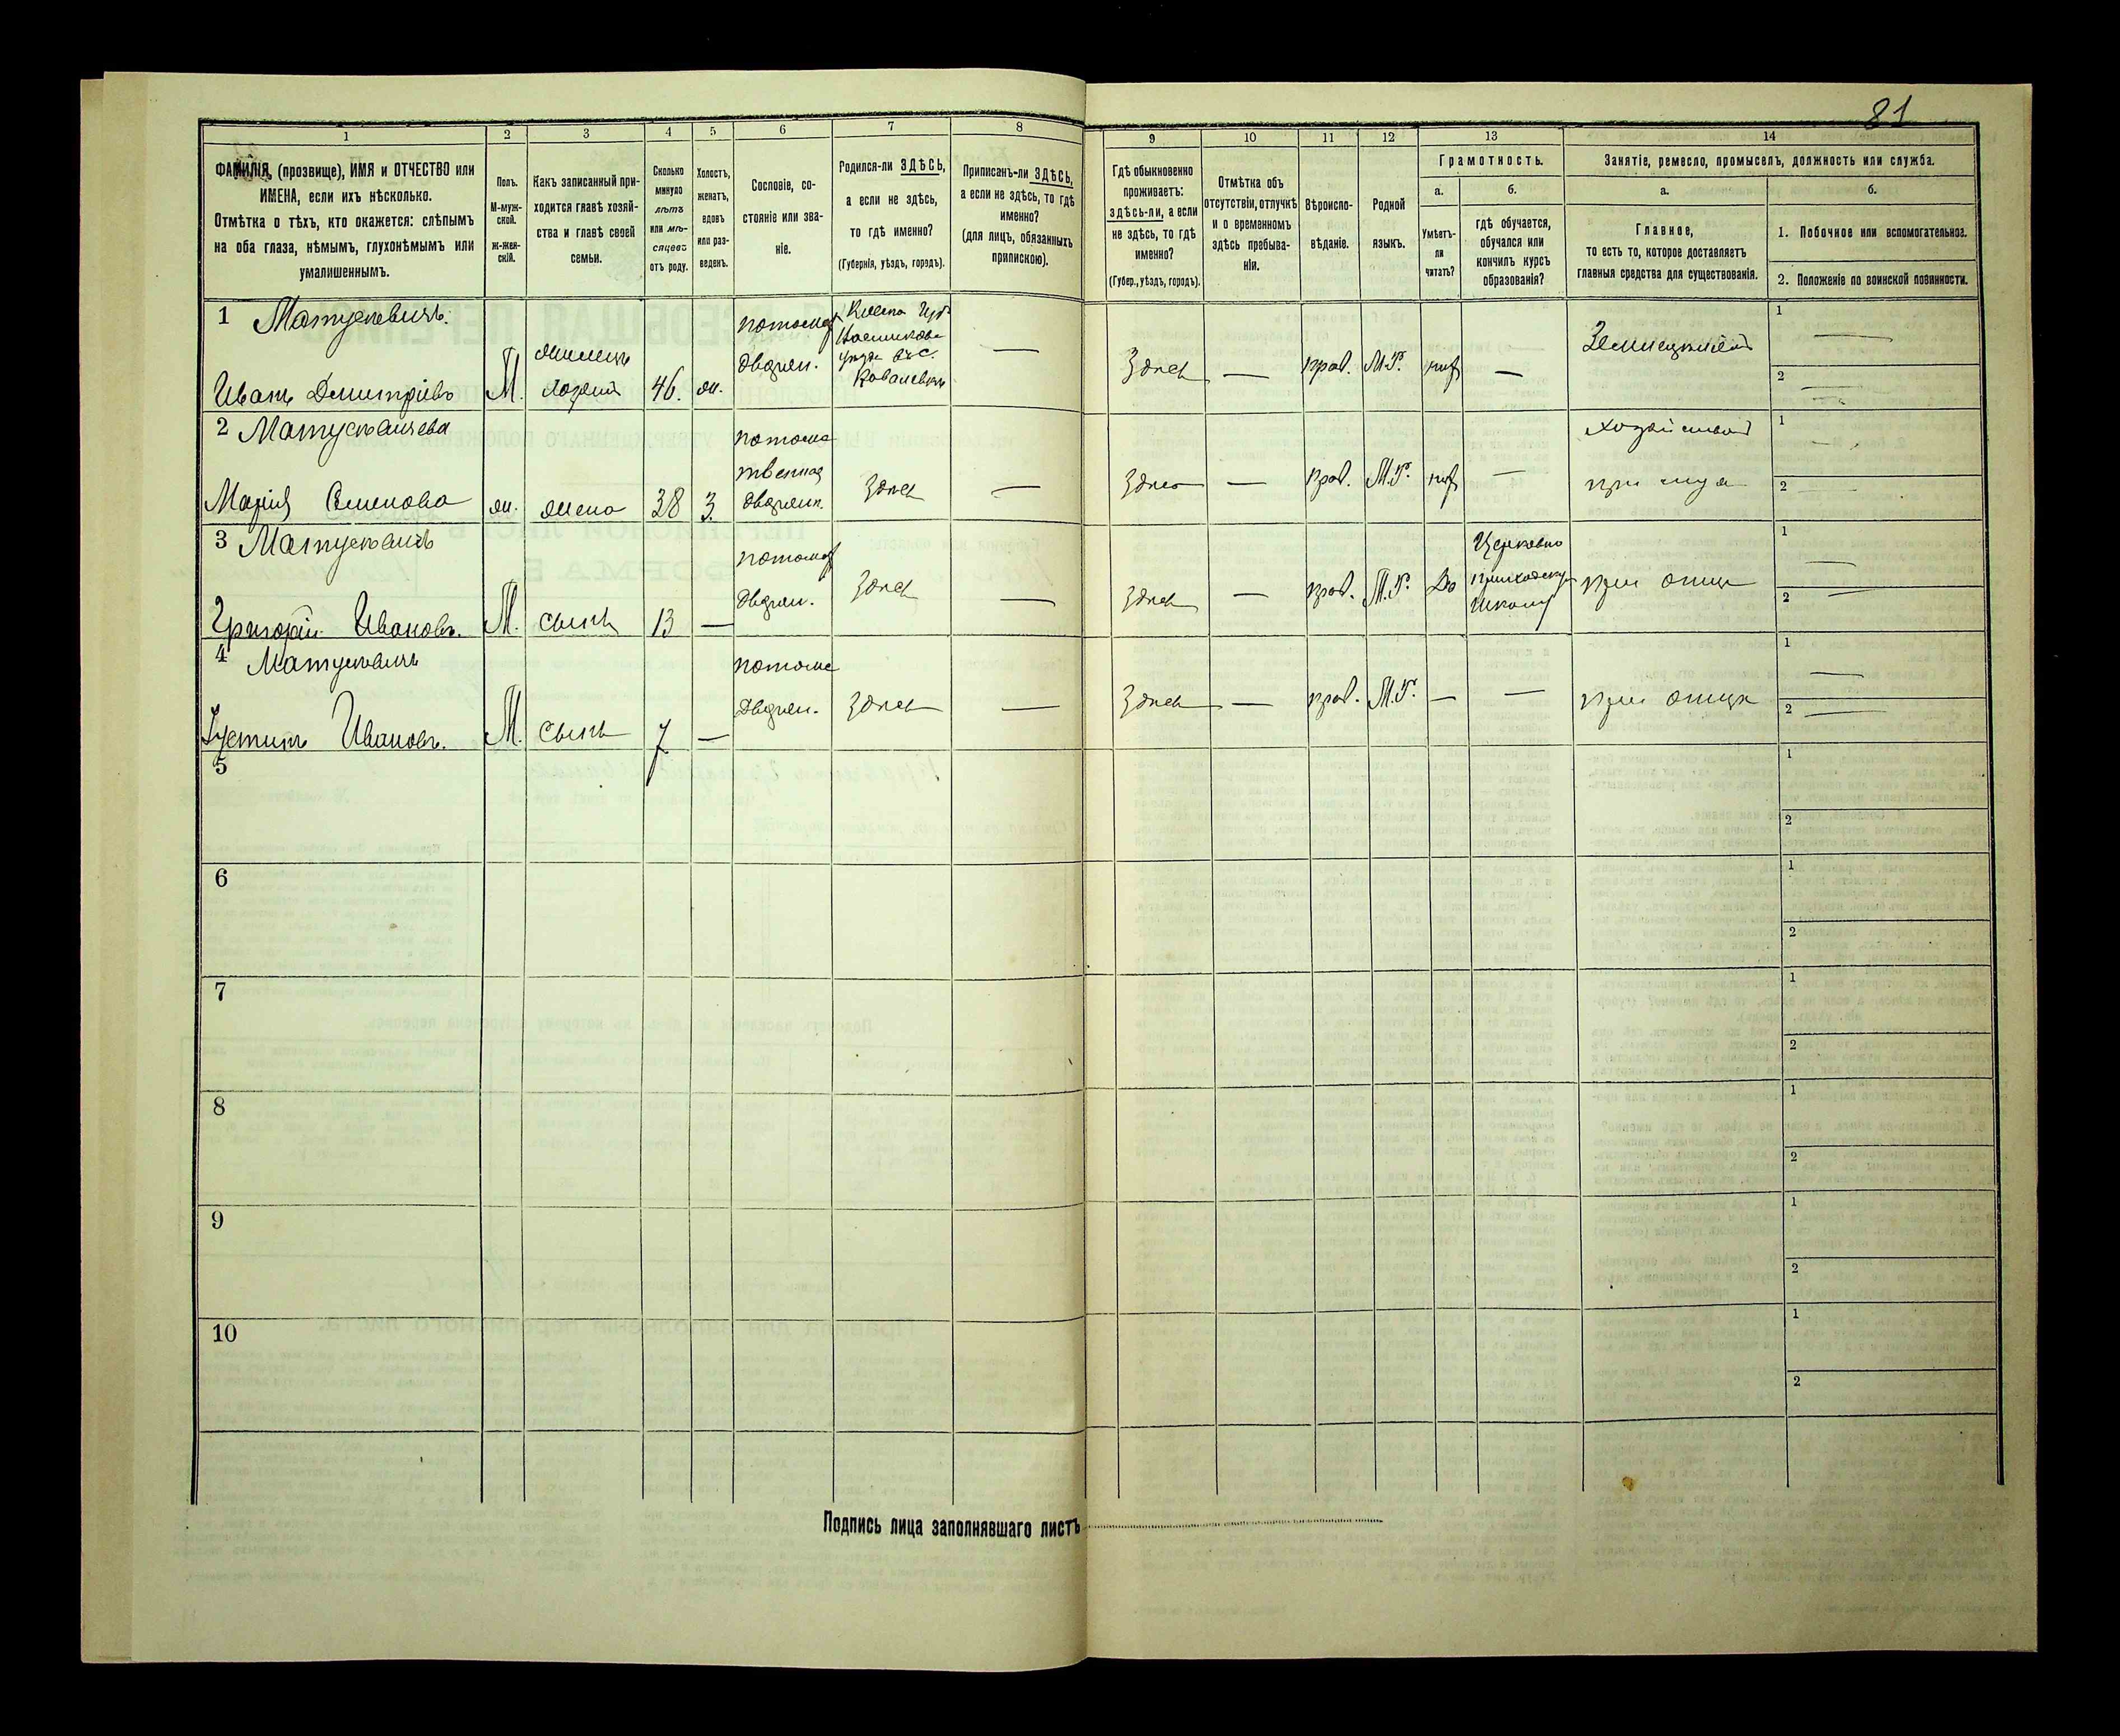 81
1
2
3
4
5
6
7
8
9
10
11
12
13
14
ФАМИЛІЯ, (прозвище), ИМЯ и ОТЧЕСТВО или
ИМЕНА, если ихъ нѣсколько.
Отмѣтка о тѣхъ, кто окажется: слѣпымъ
на оба глаза, нѣмымъ, глухонѣмымъ или
умалишеннымъ.
Полъ.
М-муж-
ской.
ж-жен-
скій.
Какъ записанный при-
ходится главѣ хозяй-
ства и главѣ своей
семьи.
Сколько
минуло
лѣтъ
или мѣ-
сяцевъ
отъ роду.
Холостъ,
женатъ,
вдовъ
или раз-
веденъ.
Сословіе, со-
стояніе или зва-
ніе.
Родился-ли ЗДѢСЬ,
а если не здѣсь,
то гдѣ именно?
(Губернія, уѣздъ, городъ).
Приписанъ-ли ЗДѢСЬ,
а если не здѣсь, то гдѣ
именно?
(для лицъ, обязанныхъ
припискою).
Гдѣ обыкновенно
проживаетъ:
здѣсь-ли, а если
не здѣсь, то гдѣ
именно?
(Губер., уѣздъ, городъ).
Отмѣтка объ
отсутствіи, отлучкѣ
и о временномъ
здѣсь пребыва-
ніи.
Вѣроиспо-
вѣданіе.
Родной
языкъ.
Грамотность.
а.
б.
Умѣетъ-
ли
читать?
гдѣ обучается,
обучался или
кончилъ курсъ
образованія?
Занятіе, ремесло, промыселъ, должность или служба.
а.
б.
Главное,
то есть то, которое доставляетъ
главныя средства для существованія.
1. Побочное или вспомогательное.
2. Положеніе по воинской повинности.
1 Матускевичъ.
Иванъ Дмитріевъ М. хозяин 46. ж.
дворян.
Здѣсь — прав. М.Р. —
1 —
2 —
2
Марія Семенова ж. жена 38 З. дворян. Здѣсь —
Здѣсь — прав. М.Р. — при муж
1 —
2 —
3
Григорій Ивановъ. М. сынъ 13 — дворян. Здѣсь —
Здѣсь — прав. М.Р. Да Церковно приходскую школу при отцѣ
1 —
2 —
4
Іустинъ Ивановъ. М. сынъ 7 — дворян. Здѣсь —
Здѣсь — прав. М.Р. — — при отцѣ
1 —
2 —
5
1
2
6
1
2
7
1
2
8
1
2
9
1
2
10
1
2
Подпись лица заполнявшаго листъ